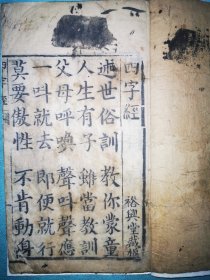 四字經 裕興堂藏板
述世俗訓 教你蒙童
人生有子 雖當教訓
父母呼喚 聲叫聲應
一叫就去 即便就行
莫要傲性 不肯動